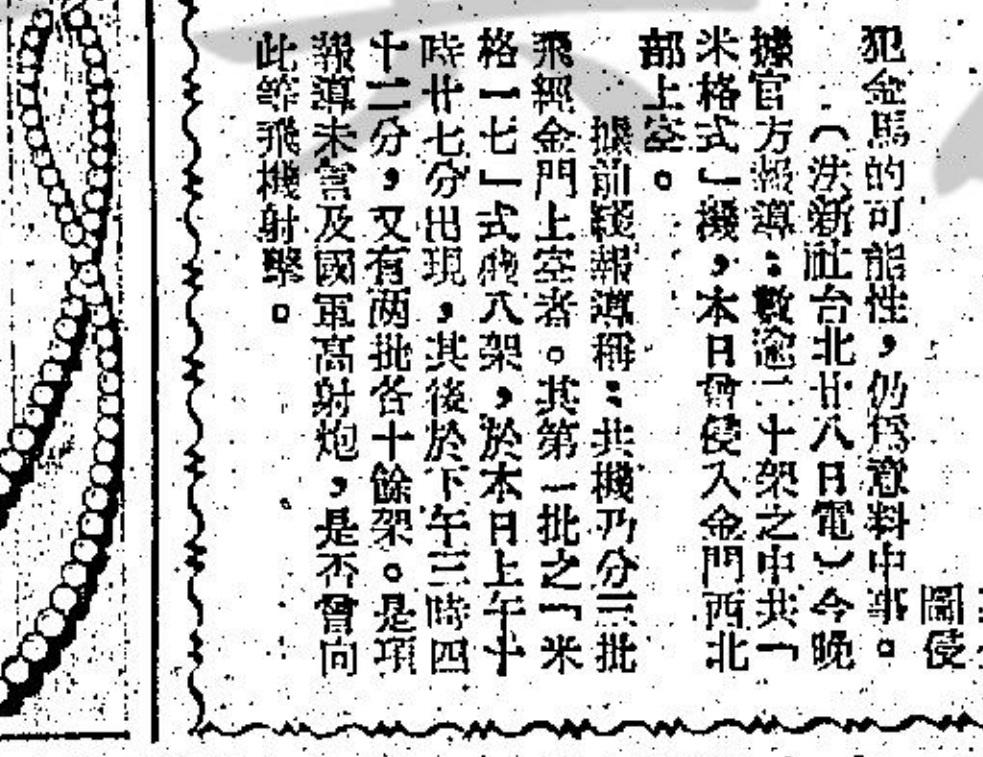 圖侵
犯金馬的可能性，仍爲意料中事。
（法新社台北廿八日電）今晚
據官方報導：數逾二十架之中共「
米格式」機，本日曾侵入金門西北
部上空。
據前綫報導稱：共機乃分三批
飛經金門上空者。其第一批之「米
格一七」式機八架，於本日上午十
時廿七分出現，其後於下午三時四
十二分，又有两批各十餘架。是項
報導未言及國軍高射炮，是否曾向
此等飛機射擊。